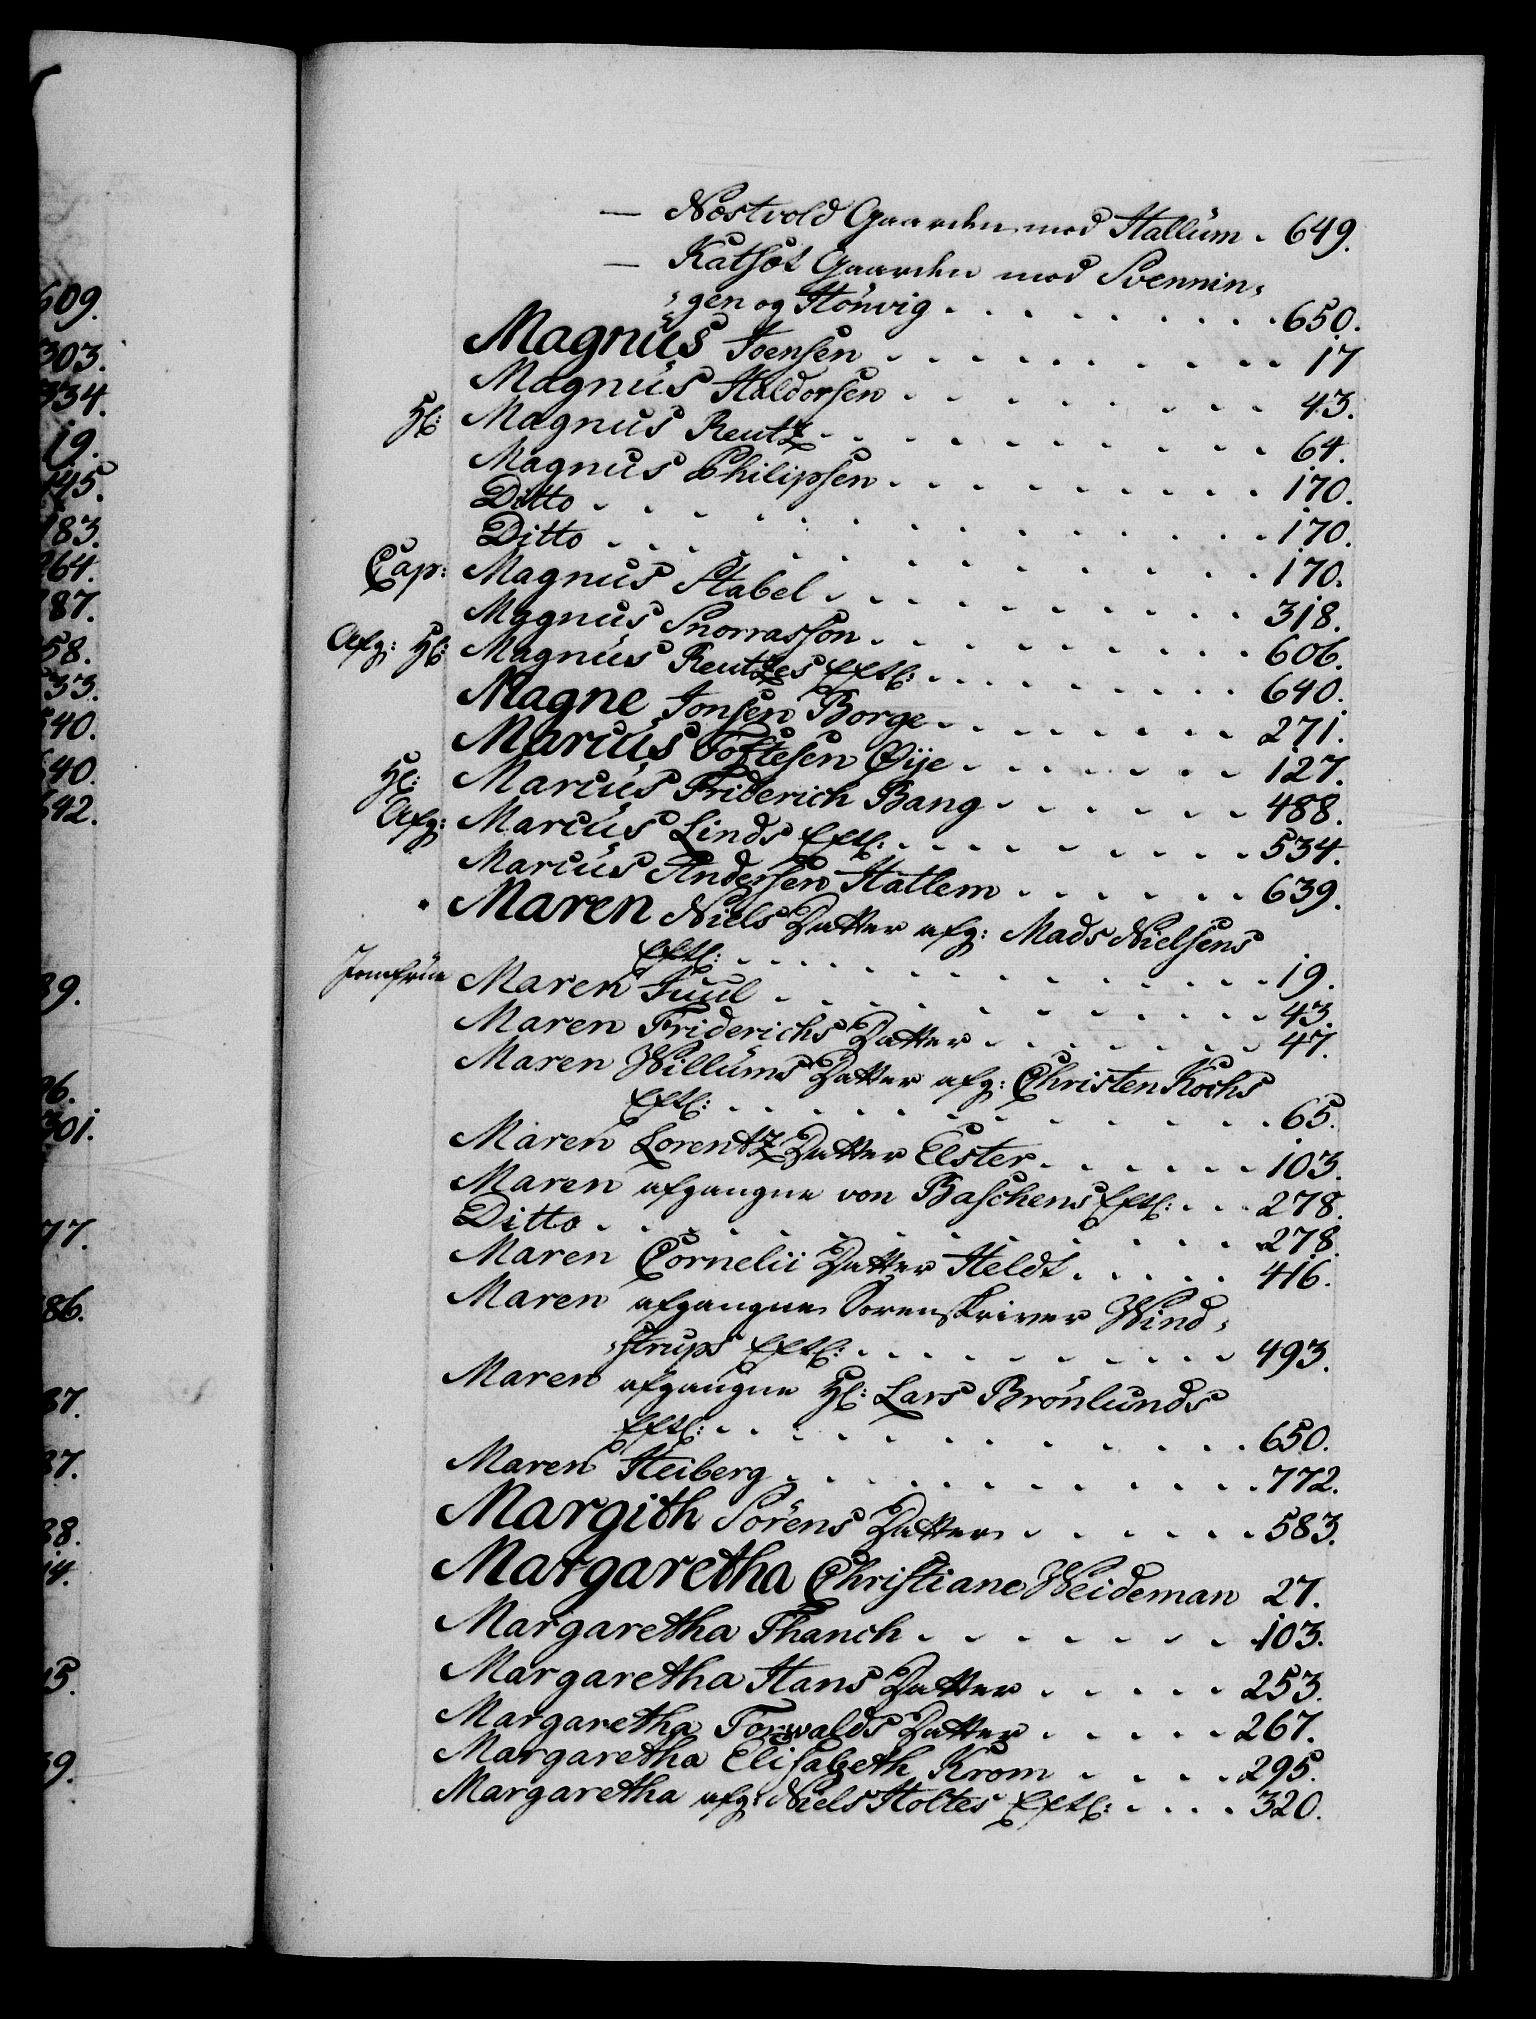 609.
303.
334.
19.
145.
183.
264.
187.
58.
33.
540.
640.
642.
39.
26.
301.
77.
86.
37.
37.
38.
14.
15.
59.
— Nostvold Gaarden med Hallüm . 649.
— Katfot Gaarden med Svennin,
,gen og Hönvig . . . . . . . . . 650.
Magnüs Joensen . . . . . . . . . 17
Magnüs Haldorsen . . . . . . . . 43.
Hl: Magnus Reutz . . . . . . . . . 64.
Magnus Philipsen . . . . . . . . 170.
Ditto . . . . . . . . . . . . 170.
Ditto . . . . . . . . . . . . 170.
Cap: Magnus Stabel . . . . . . . . . 318.
Magnus Snorrasson . . . . . . . . 606.
Afg: Hl: Magnüs Reutzes Eftl: . . . . . . . 640.
Magne Jonsen Borge . . . . . . . 271.
Marcüs Toftesen Øije . . . . . . . 127.
Hl: Marcüs Friderich Bang . . . . . . 488.
Afg: Marcüs Linds Eftl: . . . . . . . . 534.
Marcüs Andersen Hatlem . . . . . . 639.
Maren Niels Datter afg: Mads Nielsens
Eftl: . . . . . . . . . . . 19.
Jomfrüe Maren Juul . . . . . . . . . . 43.
Maren Friderichs Datter . . . . . . 47.
Maren Willüms Datter afg: Christen Kochs
Eftl: . . . . . . . . . . . 65.
Maren Lorentz Datter Elster . . . . . . 103.
Maren afgangne von Baschens Eftl: . . . 278.
Ditto . . . . . . . . . . . . 278.
Maren Cornelii Datter Heldt . . . . . 416.
Maren afgangne Sorenskriver Wind,
,strups Eftl: . . . . . . . . . 493.
Maren afgangne Hl: Lars Brönlunds
Eftl: . . . . . . . . . . . 650.
Maren Heiberg . . . . . . . . . . 772.
Margith Sörens Datter . . . . . . 583.
Margaretha Christiane Weideman 27.
Margaretha Thanch . . . . . . . 103.
Margaretha Hans Datter . . . . . 253.
Margaretha Torwalds Datter . . . . . 267.
Margaretha Elisabeth Krom . . . . 295.
Margaretha afg: Niels Holtes Eftl: . . . . 320.